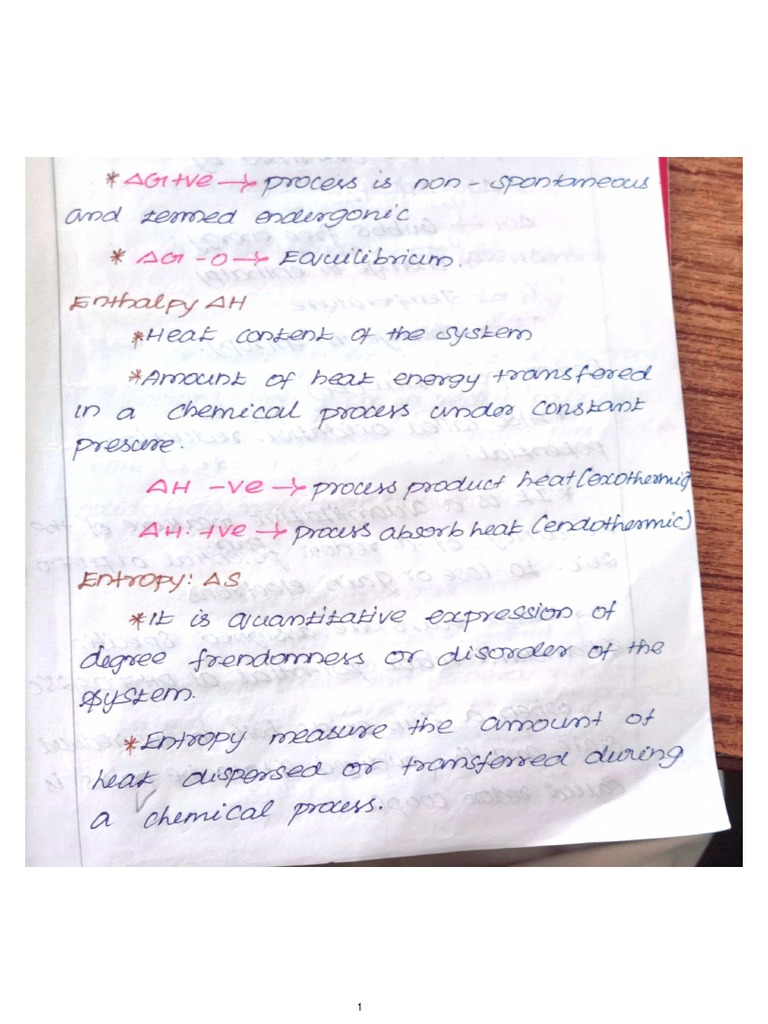 * ΔG +ve → process is non - spontaneous
and termed endergonic
* ΔG - 0 → Equilibrium.
Enthalpy ΔH
* Heat content of the system
* Amount of heat energy transfered
in a chemical process under constant
presure.
ΔH -ve → process product heat (exothermic)
ΔH. +ve → process absorb heat (endothermic)
Entropy: ΔS
* It is quantitative expression of
degree frendomness or disorder of the
system.
* Entropy measure the amount of
heat dispersed or transferred during
a chemical process.
1